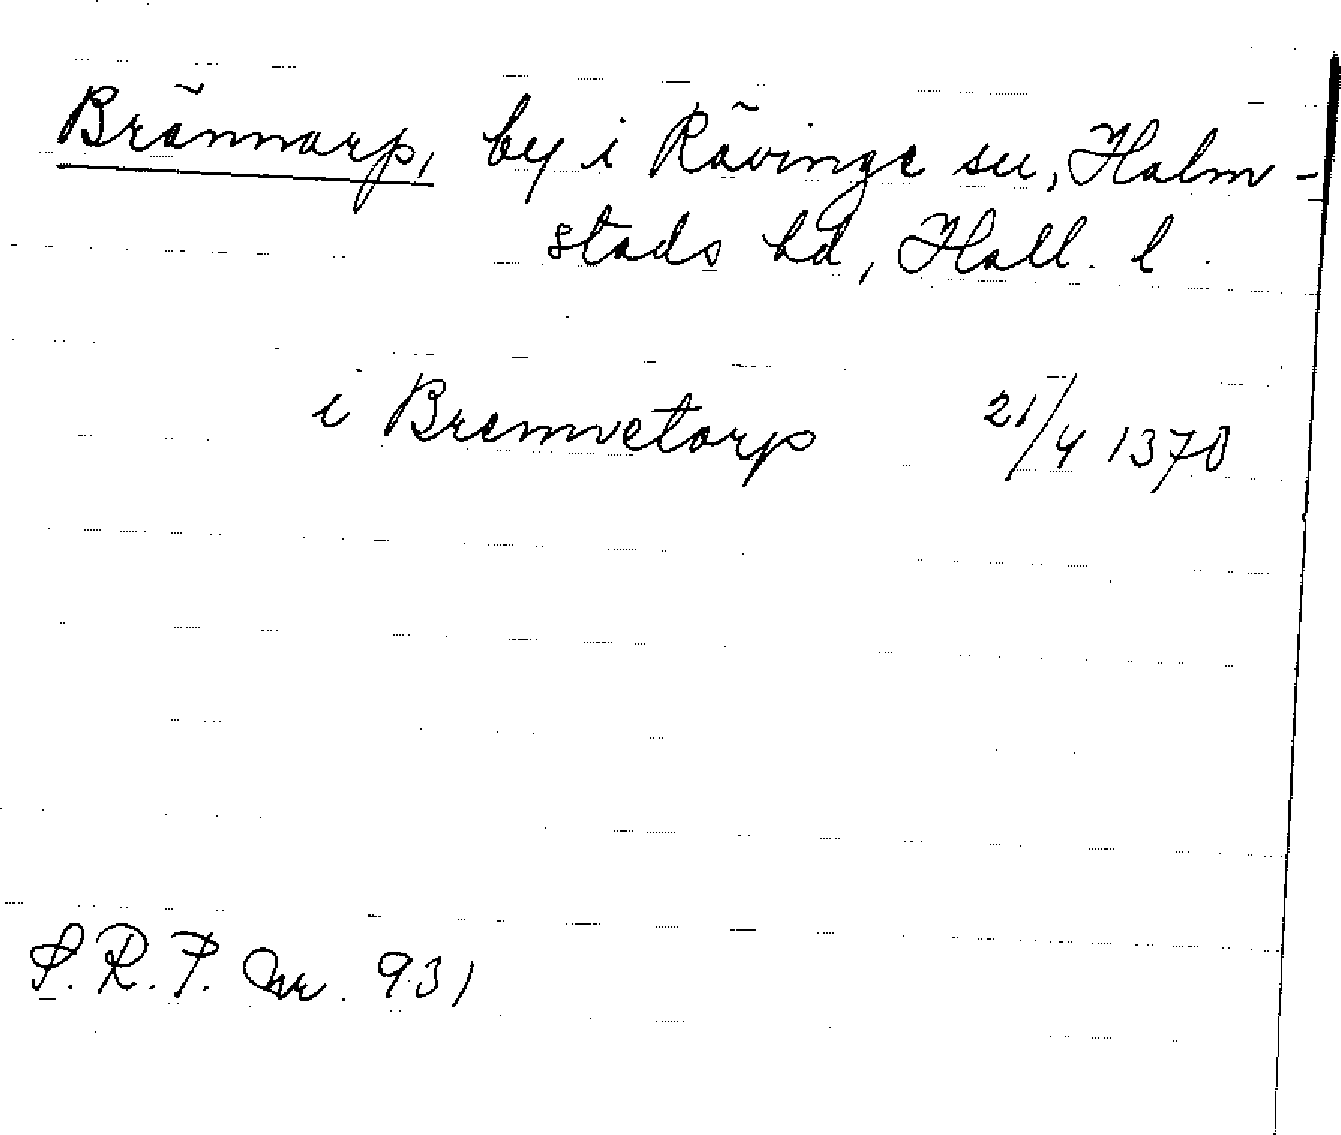 Brännarp, by i Rävinge sn, Halm-
stads hd, Hall. l.
i Bremvetorp 21/4 1370
S.R.P. Nr. 931